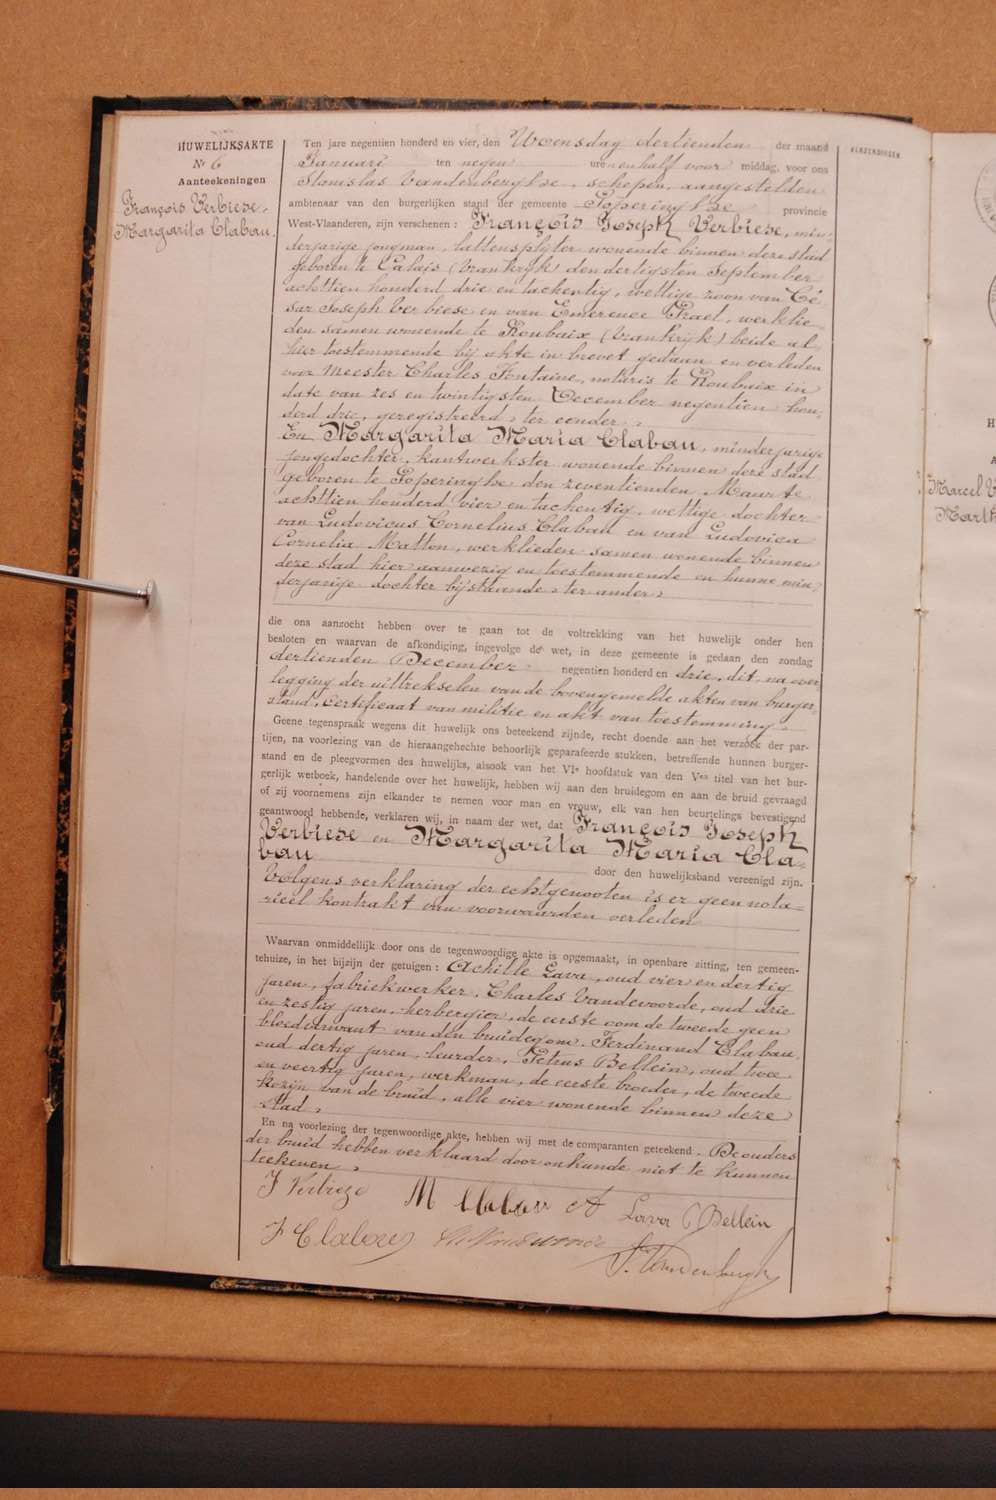 HUWELIJKSAKTE
Nr 6
Aanteekeningen
François Verbiese.
Margarita Clabau.
Ten jare negentien honderd en vier, den Woensdag dertienden der maand
Januari ten negen ure en half voor middag, voor ons
Stanislas Vandenberghe, schepen, aangestelden
ambtenaar van den burgerlijken stand der gemeente Poperinghe provincie
West-Vlaanderen, zijn verschenen: François Joseph Verbiese, min-
derjarige jongman, lattensplyter wonende binnen deze stad
geboren te Calais (Vrankrijk) den dertigsten September
achttien honderd drie en tachentig, wettige zoon van Cé-
sar Joseph Verbiese en van Emerence Praet, werklie-
den samen wonende te Roubaix (Vrankrijk) beide al-
hier toestemmende bij akte in brevet gedaan en verleden
voor Meester Charles Fontaine, notaris te Roubaix in
date van zes en twintigsten December negentien hon-
derd drie, geregistreerd, ter eender,
En Margarita Maria Clabau, minderjarige
jongedochter, kantwerkster wonende binnen deze stad
geboren te Poperinghe den zeventienden Maarte
achttien honderd vier en tachentig, wettige dochter
van Ludovicus Cornelius Clabau en van Ludovica
Cornelia Matton, werklieden samen wonende binnen
deze stad hier aanwezig en toestemmende en hunne min-
derjarige dochter bijstaande, ter ander,
die ons aanzocht hebben over te gaan tot de voltrekking van het huwelijk onder hen
besloten en waarvan de afkondiging, ingevolge de wet, in deze gemeente is gedaan den zondag
dertienden December negentien honderd en drie, dit, na over-
legging der uittrekselen van de bovengemelde akten van burger-
stand, certificaat van militie en akt van toestemming,
Geene tegenspraak wegens dit huwelijk ons beteekend zijnde, recht doende aan het verzoek der par-
tijen, na voorlezing van de hieraangehechte behoorlijk geparafeerde stukken, betreffende hunnen burger-
stand en de pleegvormen des huwelijks, alsook van het VIe hoofdstuk van den Ven titel van het bur-
gerlijk wetboek, handelende over het huwelijk, hebben wij aan den bruidegom en aan de bruid gevraagd
of zij voornemens zijn elkander te nemen voor man en vrouw, elk van hen beurtelings bevestigend
geantwoord hebbende, verklaren wij, in naam der wet, dat François Joseph
Verbiese en Margarita Maria Cla-
bau door den huwelijksband vereenigd zijn.
Volgens verklaring der echtgenooten is er geen nota-
rieel kontrakt van voorwaarden verleden
Waarvan onmiddellijk door ons de tegenwoordige akte is opgemaakt, in openbare zitting, ten gemeen-
tehuize, in het bijzijn der getuigen: Achille Lava, oud vier en dertig
jaren, fabriekwerker, Charles Vandevoorde, oud drie
en zestig jaren, herbergier, de eerste oom de tweede geen
bloedverwant van den bruidegom, Ferdinand Clabau,
oud dertig jaren, leurder, Petrus Bellein, oud twee
en veertig jaren, werkman, de eerste broeder, de tweede
kozijn van de bruid, alle vier wonende binnen deze
stad,
En na voorlezing der tegenwoordige akte, hebben wij met de comparanten geteekend. De ouders
der bruid hebben verklaard door onkunde niet te kunnen
teekenen,
M Clabau A Lava P Bellein
F Clabau
KANZENDINGEN
Marcel